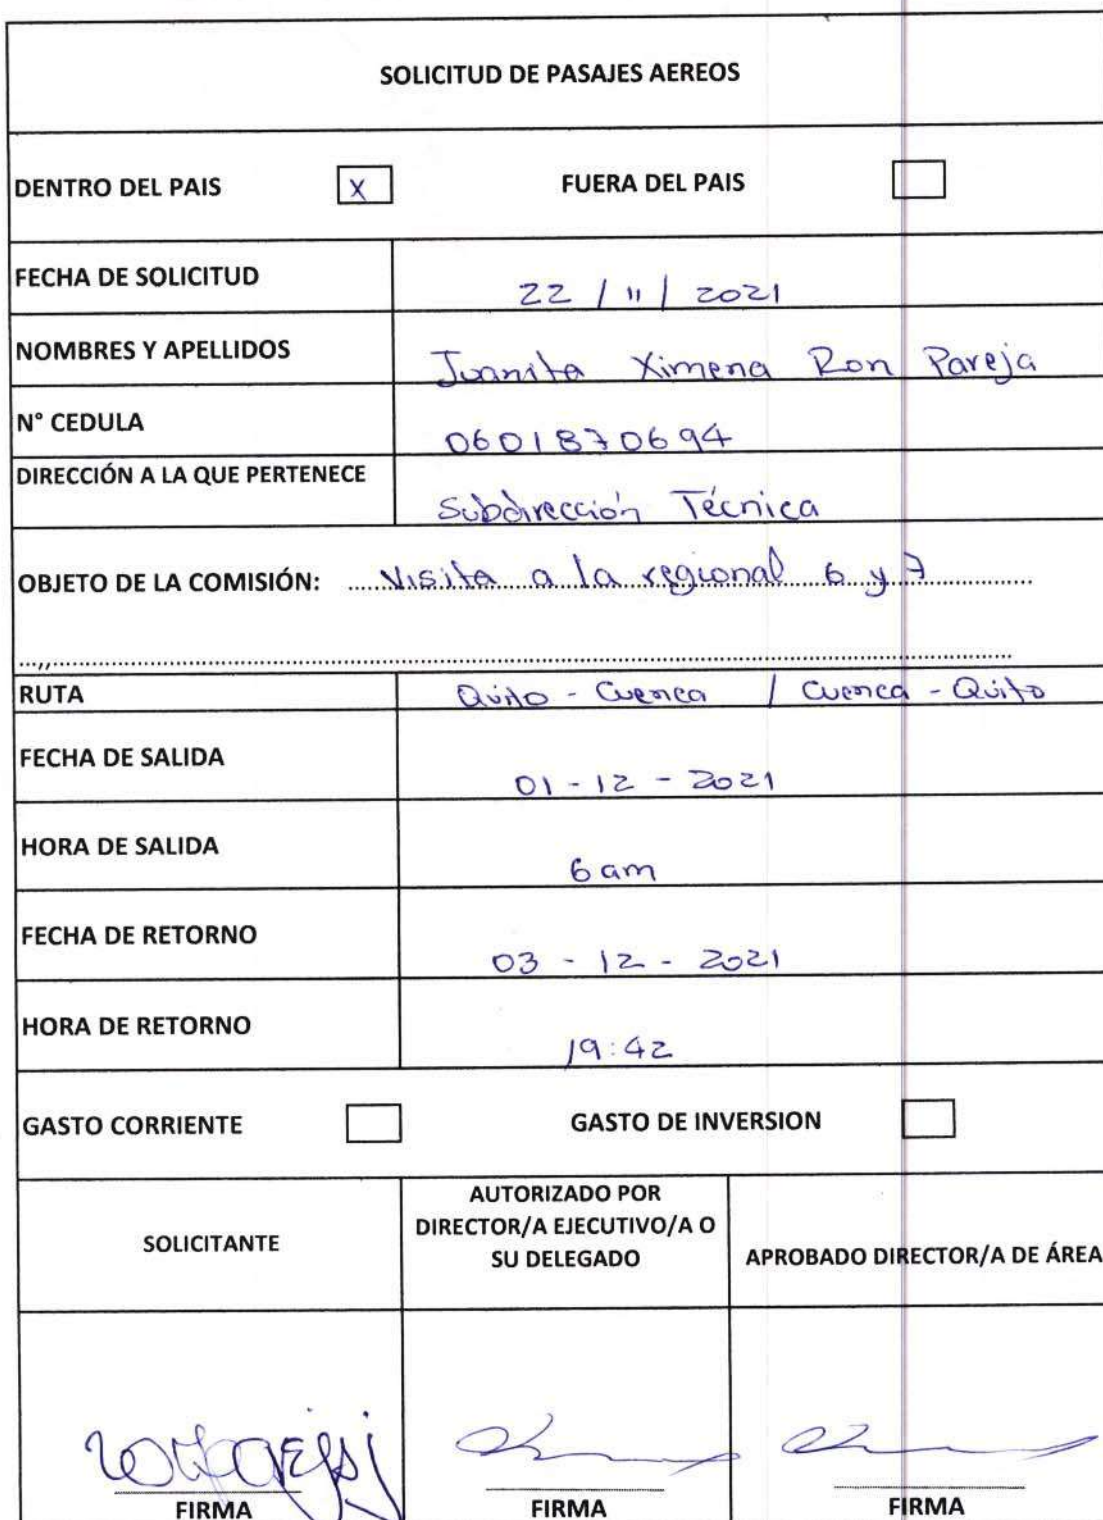 SOLICITUD DE PASAJES AEREOS
DENTRO DEL PAIS X FUERA DEL PAIS
FECHA DE SOLICITUD 22 / 11 / 2021
NOMBRES Y APELLIDOS Juanita Ximena Ron Pareja
N° CEDULA 0601870694
DIRECCIÓN A LA QUE PERTENECE Subdirección Técnica
OBJETO DE LA COMISIÓN: Visita a la regional 6 y 7
RUTA Quito - Cuenca / Cuenca - Quito
FECHA DE SALIDA 01 - 12 - 2021
HORA DE SALIDA 6 am
FECHA DE RETORNO 03 - 12 - 2021
HORA DE RETORNO 19:42
GASTO CORRIENTE GASTO DE INVERSION
SOLICITANTE
AUTORIZADO POR
DIRECTOR/A EJECUTIVO/A O
SU DELEGADO
APROBADO DIRECTOR/A DE ÁREA
FIRMA FIRMA FIRMA